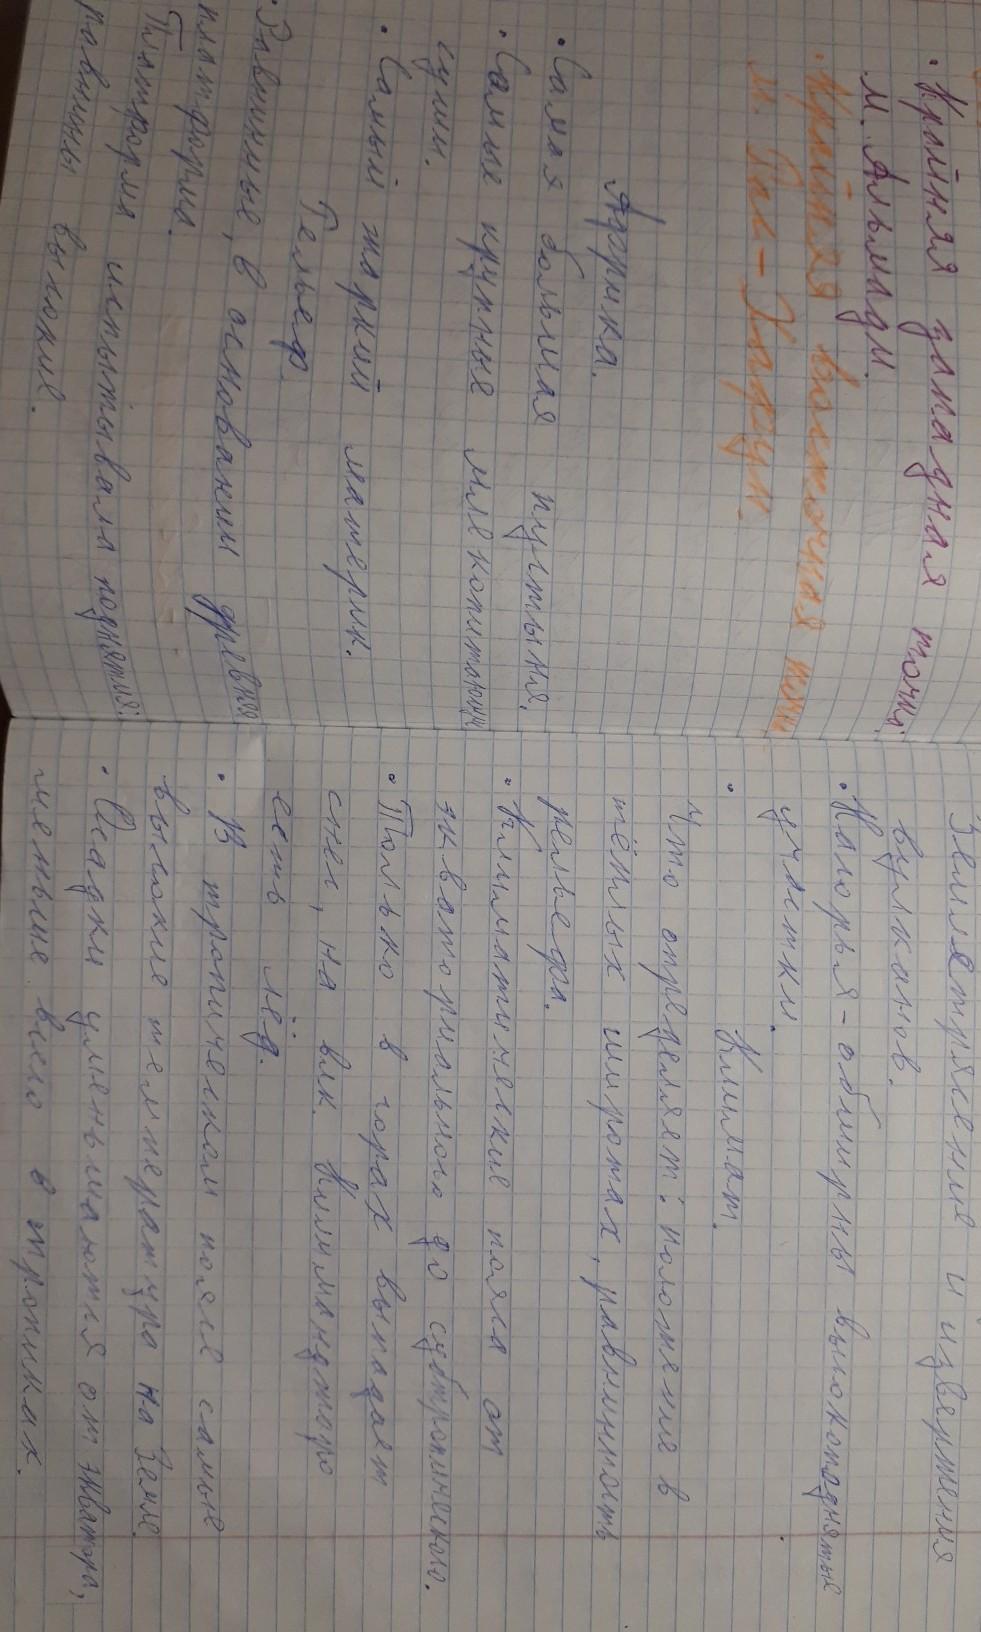 · Крайняя западная точка
м. Альмади.
· Крайняя восточная точка
м. Рас-Хафун.
Африка.
· Самая большая пустыня.
· Самые крупные млекопитающи
суши.
· Самый жаркий материк.
Рельеф.
· Равнинные, в основании древняя
платформа.
Платформа испытывала поднятия:
равнины высокие.
Землетрясение и извержения
вулканов.
· Нагорья - обширны высокоподнятые
участки.
Климат.
·
Что определяет: положение в
тёплых широтах, равнинность
рельефа.
· Климатические пояса от
экваториального до субтропического.
· Только в горах выпадает
снег, на влк. Килиманджаро
есть лёд.
· В тропическом поясе самые
высокие температура на Земле.
· Осадки уменьшаются от экватора,
меньше всего в тропиках.